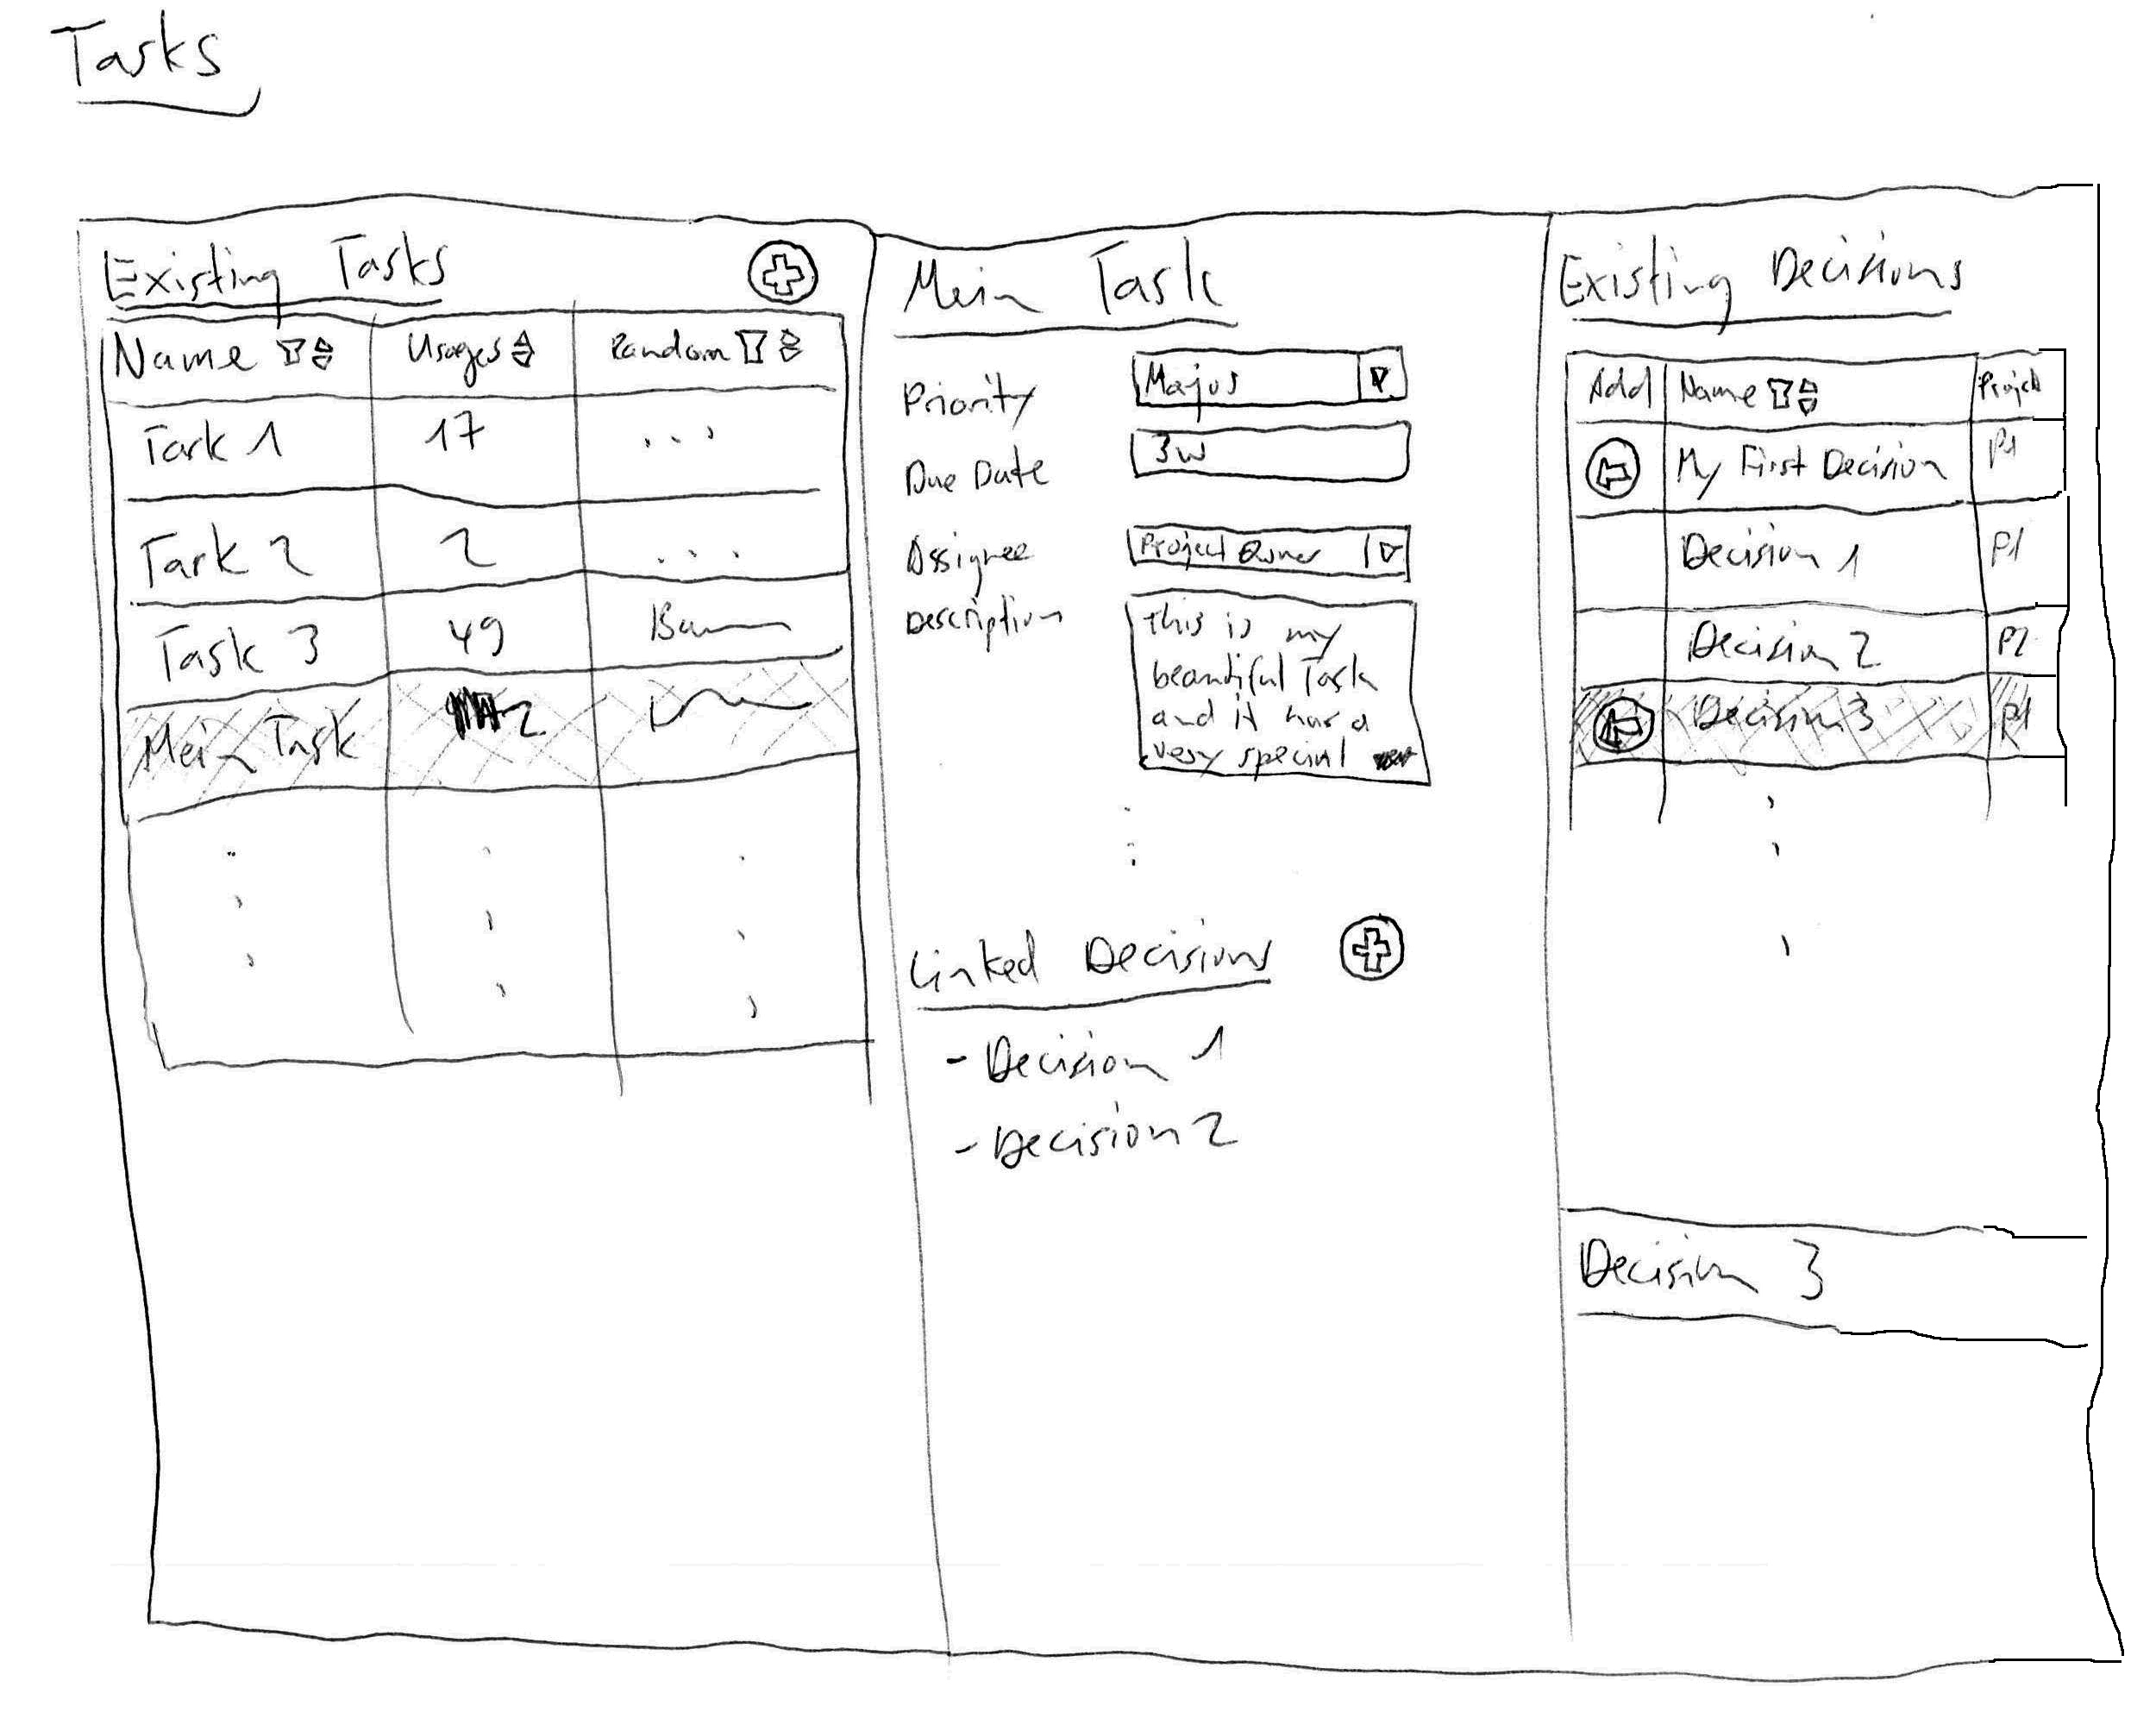 Tasks
Existing Tasks
Name Usages Random
Task 1 17 ...
Task 2 2 ...
Task 3 49
Mein Task 2
Mein Task
Priority Major
Due Date 3w
Assignee Project Owner
Description This is my
beautiful Task
and it has a
very special
Linked Decisions
- Decision 1
- Decision 2
Existing Decisions
Add Name Project
My First Decision P1
Decision 1 P1
Decision 2 P2
Decision 3 P1
Decision 3